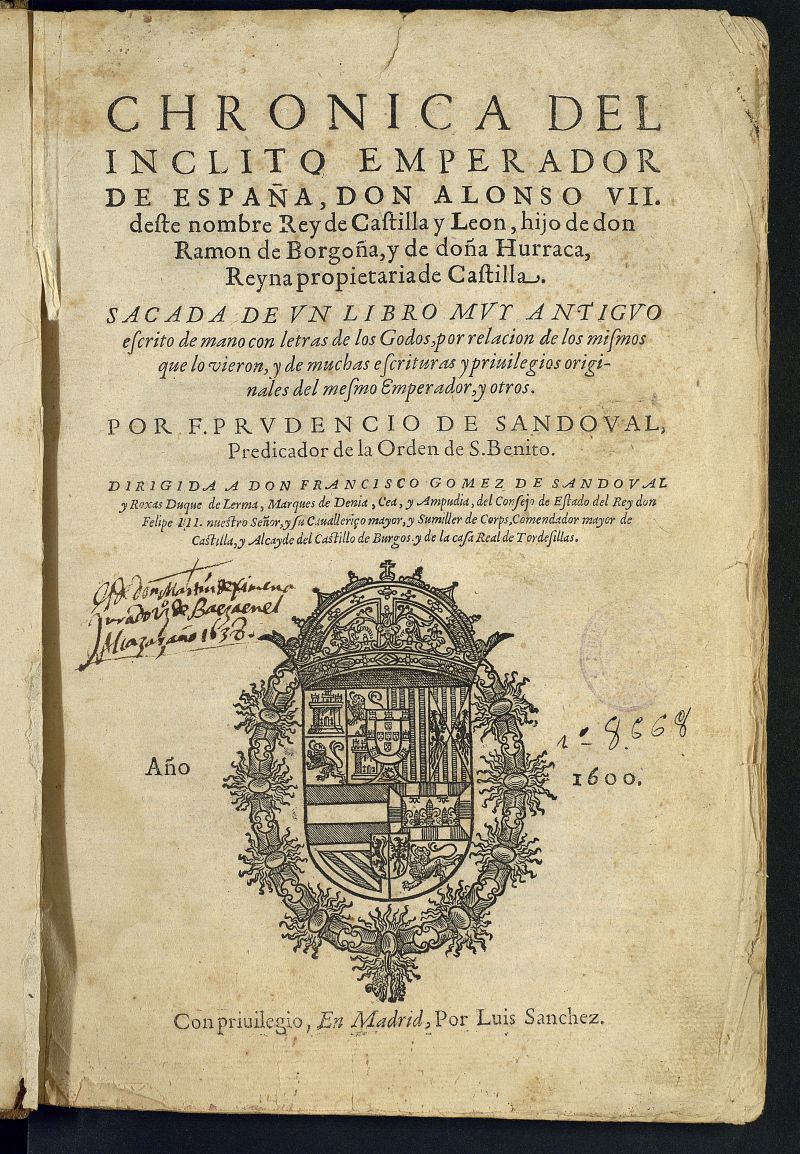 CHRONICA DEL
INCLITO EMPERADOR
DE ESPAÑA, DON ALONSO VII.
deſte nombre Rey de Caſtilla y Leon, hijo de don
Ramon de Borgoña, y de doña Hurraca,
Reyna propietaria de Caſtilla.
SACADA DE VN LIBRO MVY ANTIGVO
eſcrito de mano con letras de los Godos, por relacion de los miſmos
que lo vieron, y de muchas eſcrituras y priuilegios origi-
nales del meſmo Emperador, y otros.
POR F. PRVDENCIO DE SANDOVAL,
Predicador de la Orden de S. Benito.
DIRIGIDA A DON FRANCISCO GOMEZ DE SANDOVAL
y Roxas Duque de Lerma, Marques de Denia, Cea, y Ampudia, del Conſejo de Eſtado del Rey don
Felipe III. nueſtro Señor, y ſu Cauallerico mayor, y Sumiller de Corps, Comendador mayor de
Caſtilla, y Alcayde del Caſtillo de Burgos y de la caſa Real de Tordeſillas.
de don Martin de Ximena
Jurado de Baeza en el
Alcazar año 1638.
nº 8.668
Año 1600.
Con priuilegio, En Madrid, Por Luis Sanchez.